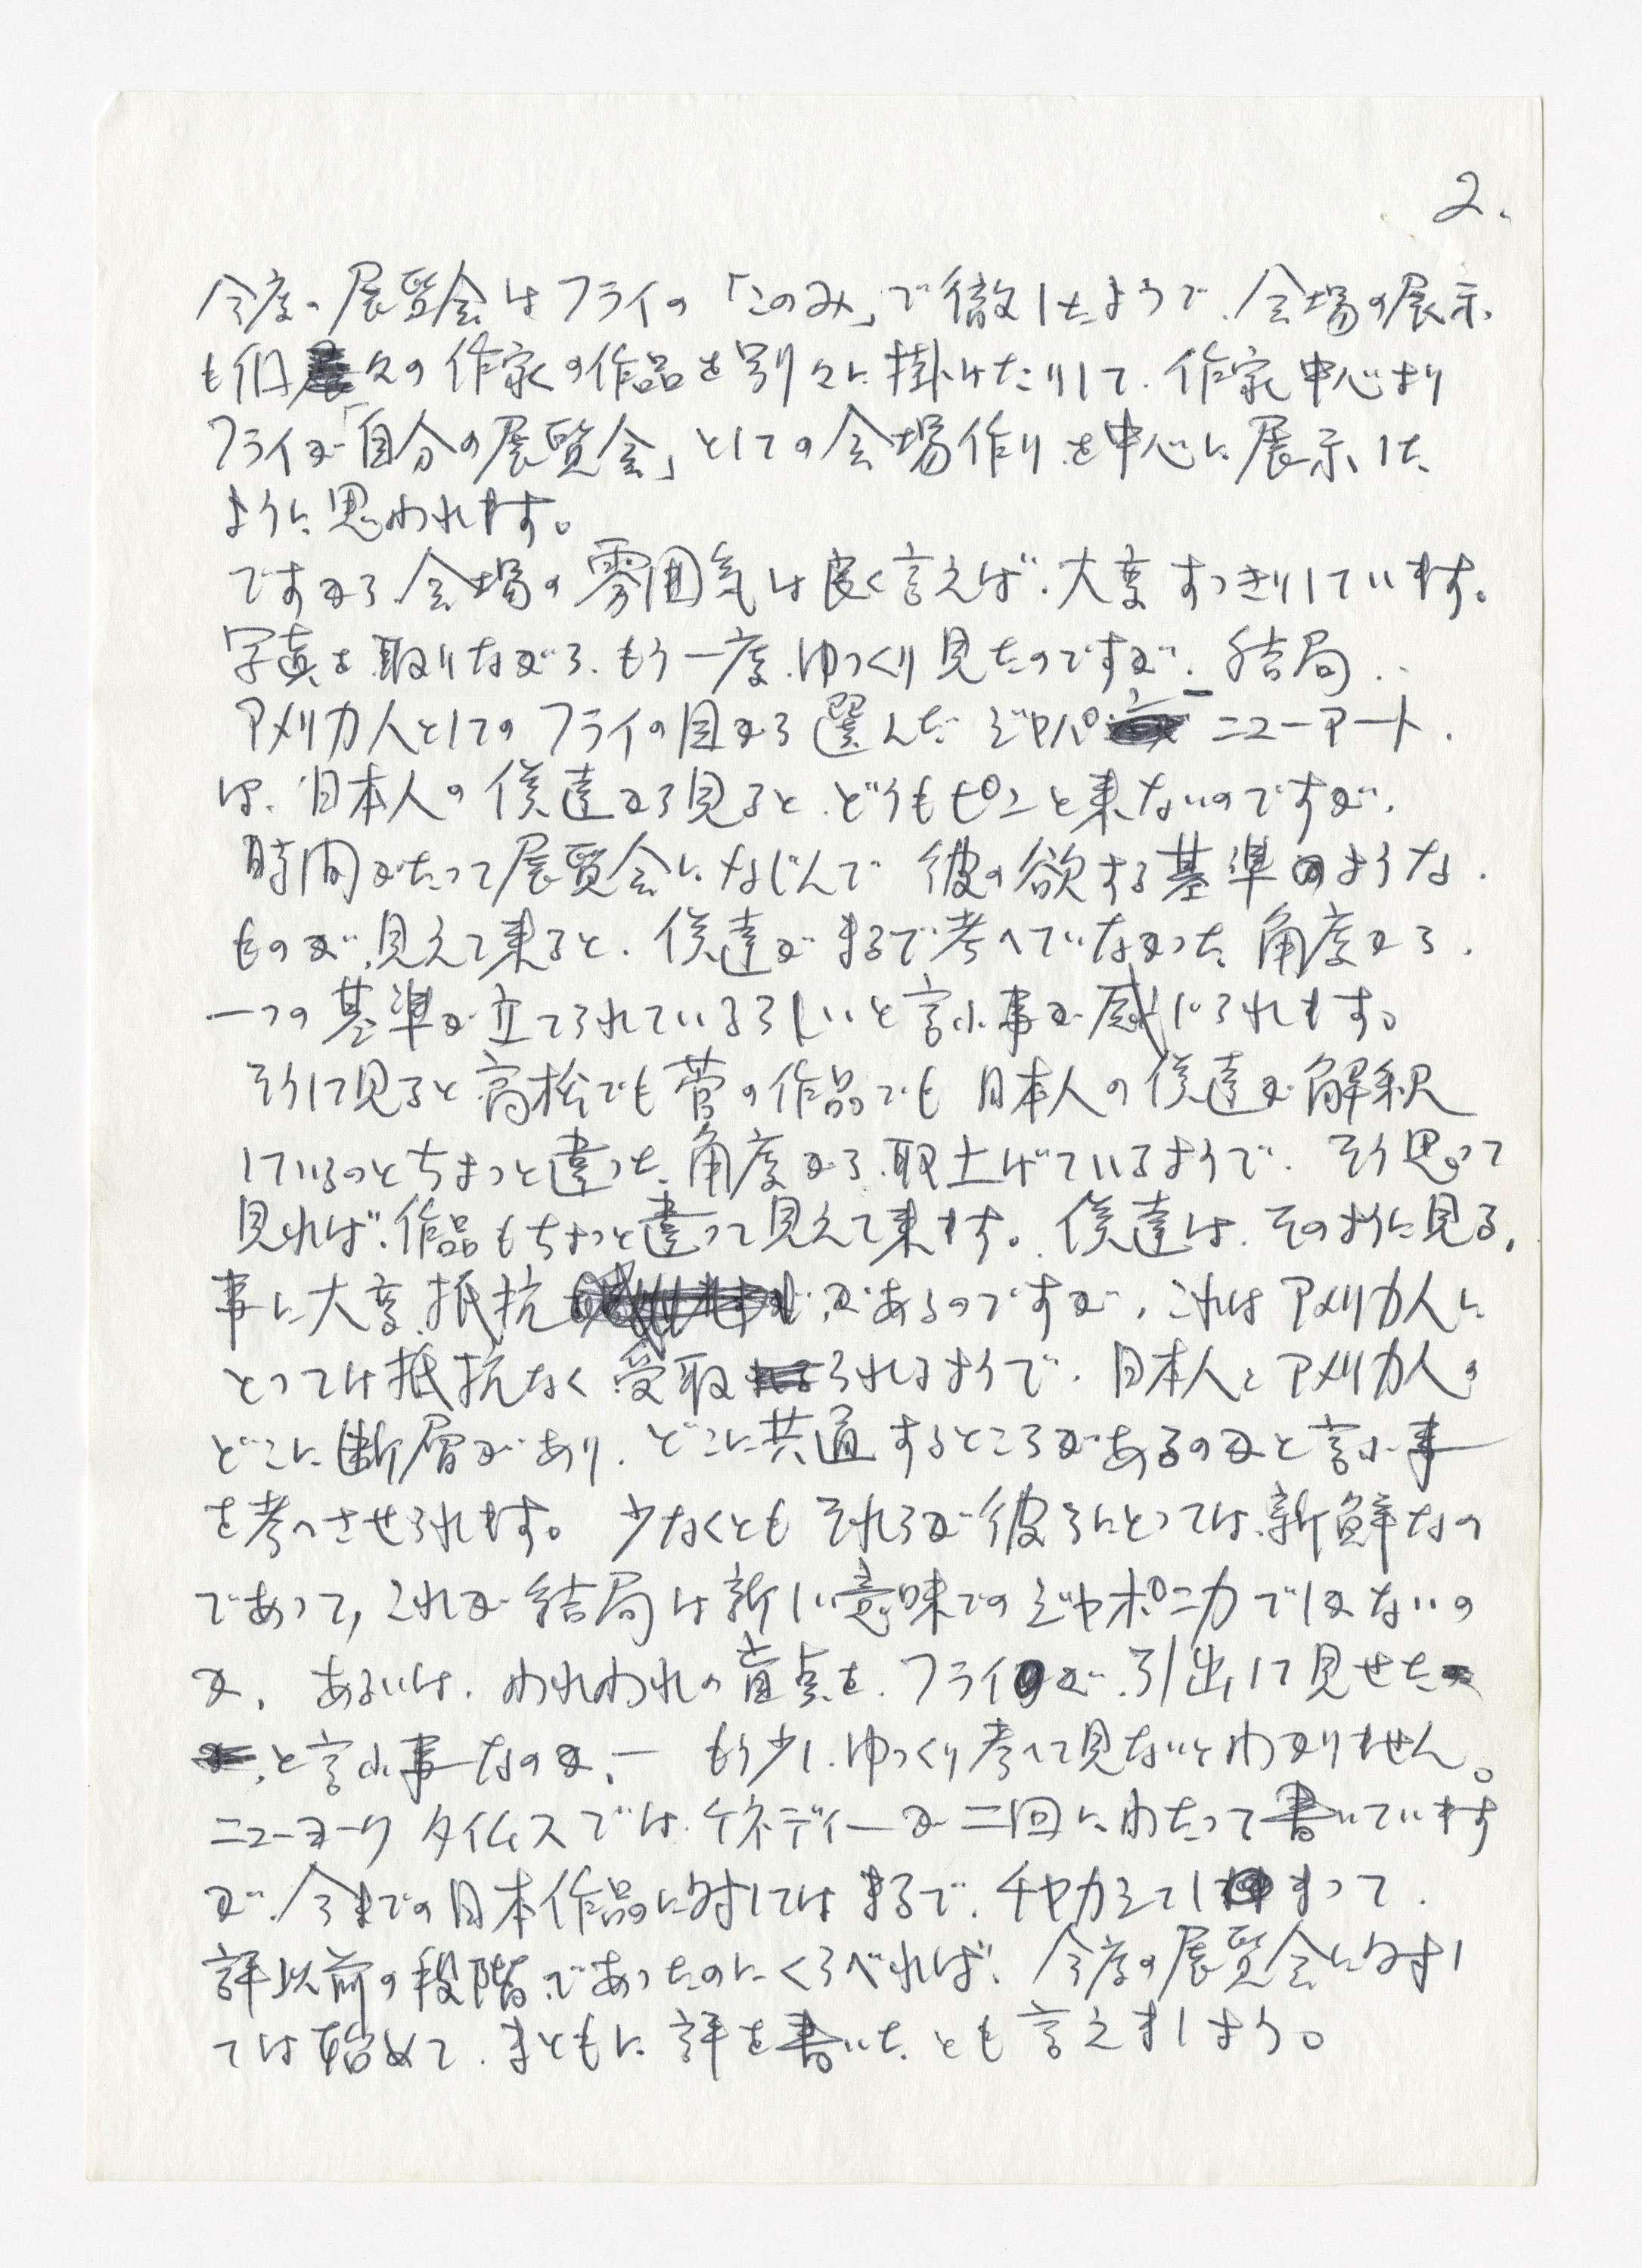 2.
今度の展覧会はフライの「このみ」で徹したようで、会場の展示
も個々の作家の作品を別々に掛けたりして、作家中心より
フライが「自分の展覧会」としての会場作りを中心に展示した
ように思われます。
ですから会場の雰囲気は良く言えば、大変すっきりしています。
写真を取りながら、もう一度、ゆっくり見たのですが、結局、
アメリカ人としてのフライの目から選んだジャパン ニューアート、
は、日本人の僕達から見ると、どうもピンと来ないのですが、
時間がたって展覧会になじんで 彼の欲する基準のような、
ものが、見えて来ると、僕達がまるで考へていなかった角度から、
一つの基準が立てられているらしいと言ふ事が感じられます。
そうして見ると高松でも菅の作品でも 日本人の僕達が解釈
しているのとちょっと違った角度から取上げているようで、そう思って
見れば、作品もちょっと違って見えて来ます。僕達は、そのように見る、
事に大変抵抗があるのですが、これはアメリカ人に
とっては抵抗なく受取られるようで、日本人とアメリカ人の
どこに断層があり、どこに共通するところがあるのかと言ふ事
を考へさせられます。少なくともそれらが彼らにとっては新鮮なの
であって、これが結局は新しい意味でのジャポニカでしかないの
か、あるいは、われわれの盲点を、フライが、引出して見せた
と言ふ事なのか、ー もう少し、ゆっくり考へて見ないとわかりません。
ニューヨーク タイムスでは、ケネディーが二回にわたって書いています
が、今までの日本作品に対してはまるで、チャカシてしまって、
評以前の段階であったのにくらべれば、今度の展覧会に対し
ては始めて、まともに評を書いたとも言えましょう。